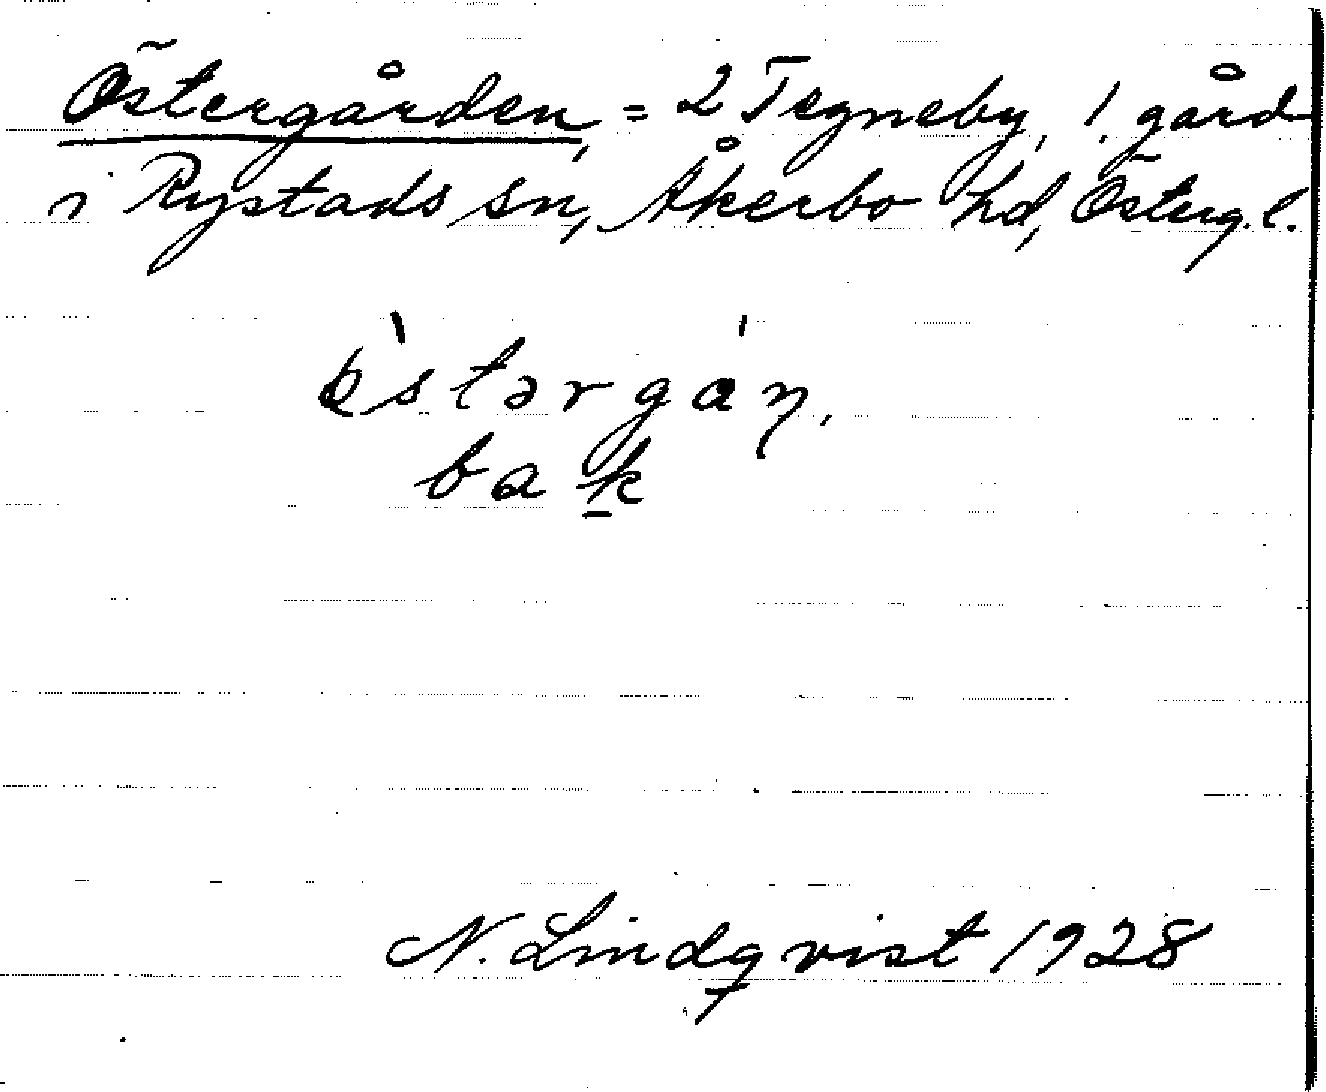 Östergården, = 2 Tegneby, 1. gård
i Rystads sn, Åkerbo hd, Österg. l.
ö̀stərgán,
bak
N. Lindqvist 1928